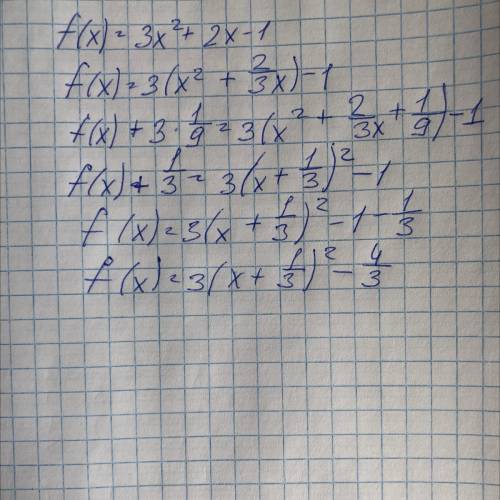 f(x) = 3x² + 2x - 1
f(x) = 3(x² + 2/3x) - 1
f(x) + 3 · 1/9 = 3(x² + 2/3x + 1/9) - 1
f(x) + 1/3 = 3(x + 1/3)² - 1
f(x) = 3(x + 1/3)² - 1 - 1/3
f(x) = 3(x + 1/3)² - 4/3